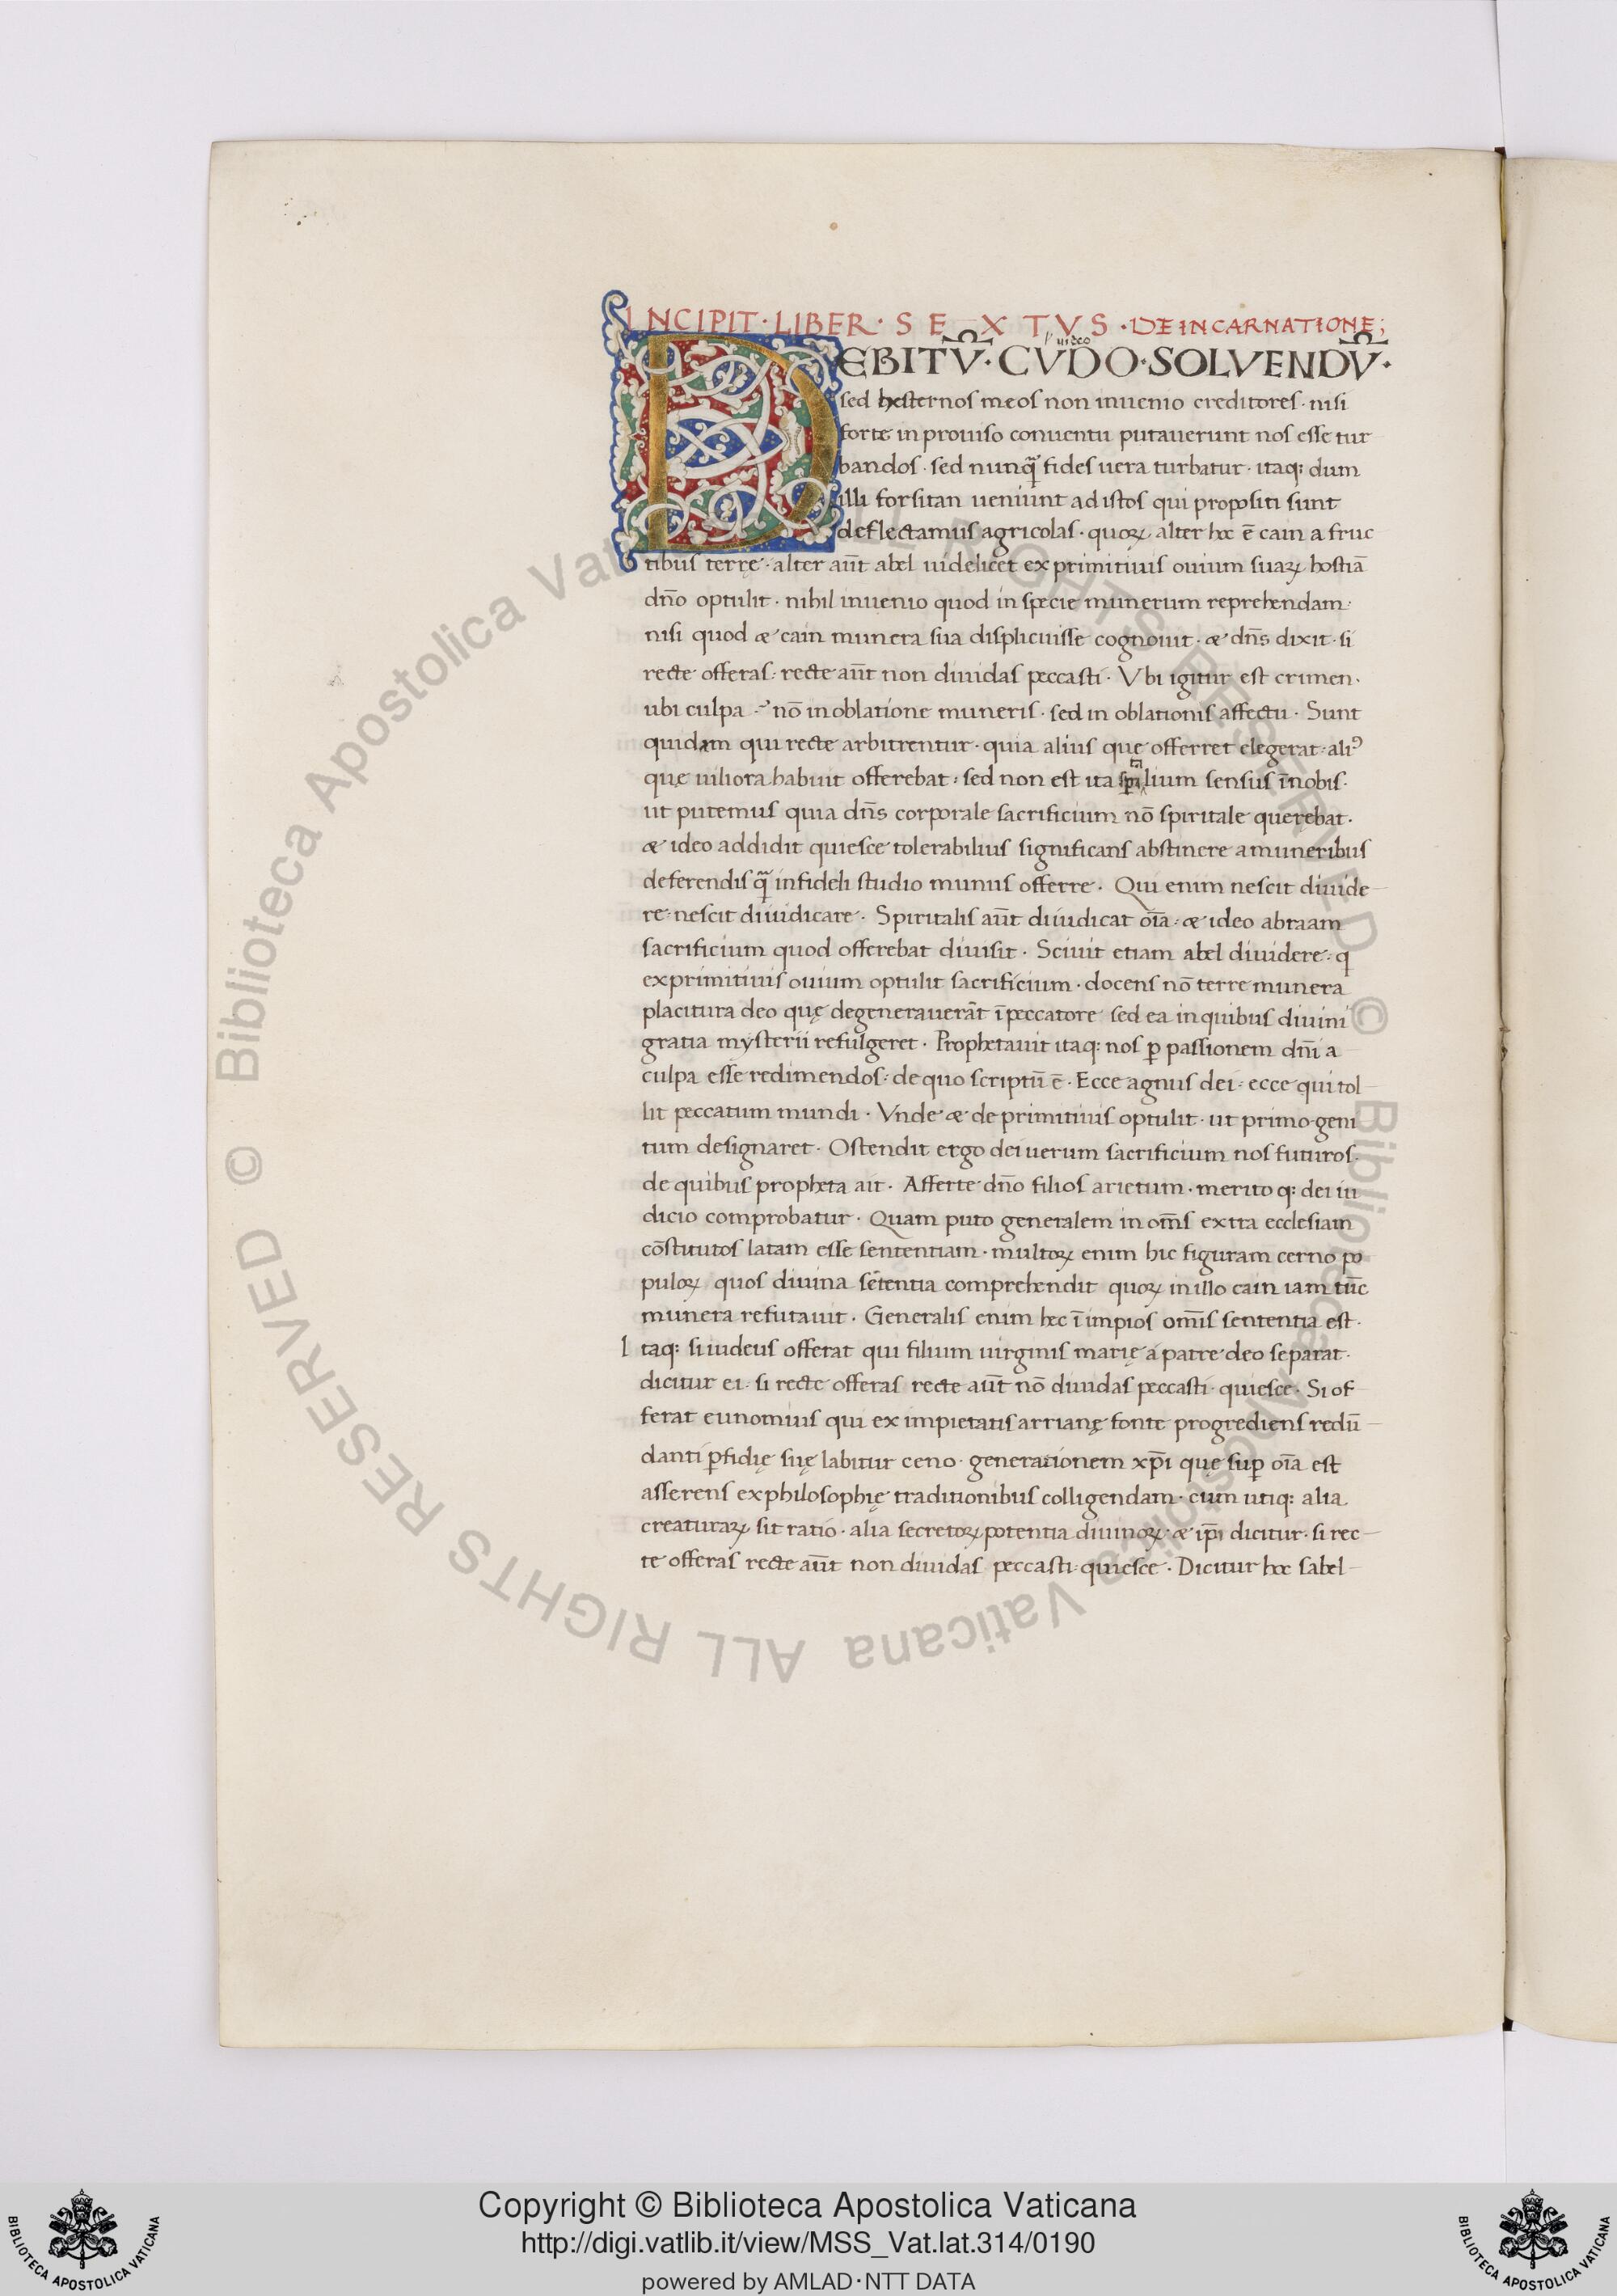 INCIPIT · LIBER · SEXTVS · DE INCARNATIONE;
DEBITV̄ · CVDO · SOLVENDV̄ ·
sed hesternos meos non inuenio creditores · nisi
forte inprouiso conuentu putauerunt nos esse tur
bandos · sed nunq̄ fides uera turbatur · itaq: dum
illi forsitan ueniunt ad istos qui propositi sunt
deflectamus agricolas · quoꝝ alter hoc ē cain a fruc
tibus terrę · alter aūt abel uidelicet ex primitiuis ouium suaꝝ hostiā
dn̄o optulit · nihil inuenio quod in specie munerum reprehendam ·
nisi quod æ cain munera sua displicuisse cognouit · æ dn̄s dixit · si
recte offeras : recte aūt non diuidas peccasti · Vbi igitur est crimen ·
ubi culpa · nō in oblatione muneris · sed in oblationis affectu · Sunt
quidam qui recte arbitrentur · quia alius quę offerret elegerat · aliꝰ
quę uiliora habuit offerebat : sed non est ita lium sensus īnobis ·
ut putemus quia dn̄s corporale sacrificium nō spiritale querebat ·
æ ideo addidit quiesce tolerabilius significans abstinere amuneribus
deferendis q̄ infideli studio munus offerre · Qui enim nescit diuide
re : nescit diiudicare · Spiritalis aūt diiudicat oīa : æ ideo abraam
sacrificium quod offerebat diuisit · Sciuit etiam abel diuidere : q
exprimitiuis ouium optulit sacrificium · docens nō terre munera
placitura deo quę degenerauerāt īpeccatore sed ea inquibus diuini
gratia mysterii refulgeret · Prophetauit itaq: nos ꝑ passionem dn̄i a
culpa esse redimendos : de quo scriptū ē · Ecce agnus dei : ecce qui tol
lit peccatum mundi · Vnde æ de primitiuis optulit · ut primo-geni
tum designaret · Ostendit ergo dei uerum sacrificium nos futuros ·
de quibus propheta ait · Afferte dn̄o filios arietum · merito q: dei iu
dicio comprobatur · Quam puto generalem in om̄s extra ecclesiam
cōstitutos latam esse sententiam · multoꝝ enim hic figuram cerno po
puloꝝ quos diuina sētentia comprehendit quoꝝ in illo cain iam tūc
munera refutauit · Generalis enim hec ī impios om̄is sententia est ·
Itaq: si iudeus offerat qui filium uirginis marię a patre deo separat ·
dicitur ei · si recte offeras recte aūt nō diuidas peccasti · quiesce · Si of
ferat eunomius qui ex impietatis arrianę fonte progrediens redū
danti ꝑfidię suę labitur ceno · generationem xp̄i quę suꝑ oīa est
asserens exphilosophię traditionibus colligendam · cum utiq: alia
creaturaꝝ sit ratio · alia secretoꝝ potentia diuinoꝝ · æ ip̄i dicitur · si rec
te offeras recte aūt non diuidas peccasti : quiesce · Dicitur hoc sabel
© Biblioteca Apostolica Vaticana ALL RIGHTS RESERVED © Biblioteca Apostolica Vaticana ALL RIGHTS RESERVED
Copyright © Biblioteca Apostolica Vaticana
http://digi.vatlib.it/view/MSS_Vat.lat.314/0190
powered by AMLAD·NTT DATA
BIBLIOTECA APOSTOLICA VATICANA
BIBLIOTECA APOSTOLICA VATICANA